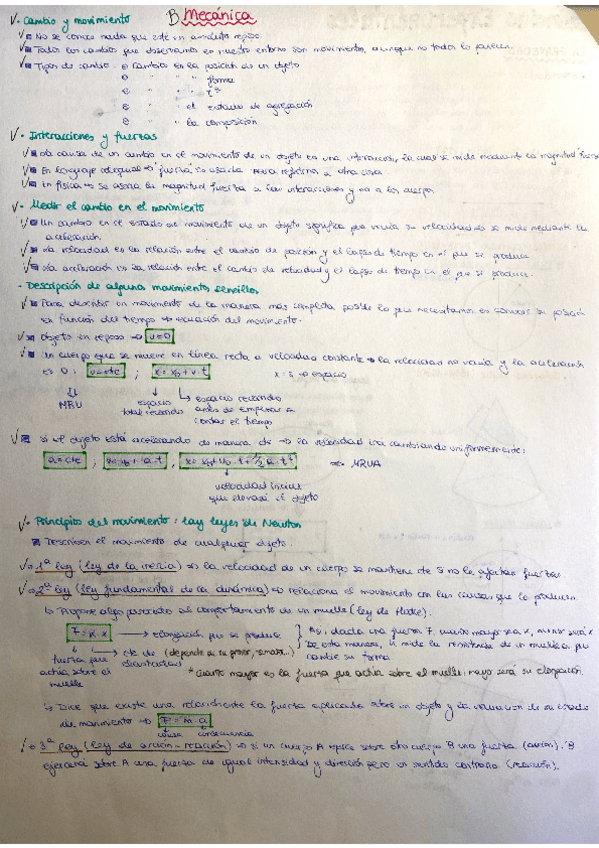 B. Mecánica
✓ · Cambio y movimiento
✓ No se conoce nada que esté en absoluto reposo.
✓ Todos los cambios que observamos en nuestro entorno son movimiento, aunque no todos lo parecen.
✓ Tipos de cambio: Cambios en la posición de un objeto
" " " forma
" " " tª
" " " el estado de agregación
" " " la composición
✓ · Interacciones y fuerzas
✓ La causa de un cambio en el movimiento de un objeto es una interacción, la cual se mide mediante la magnitud fuerza
✓ En lenguaje coloquial → fuerza es usada para referirse a otra cosa
✓ En física → se asocia la magnitud fuerza a las interacciones y no a los cuerpos
✓ · Medir el cambio en el movimiento
✓ Un cambio en el estado de movimiento de un objeto significa que varía su velocidad → se mide mediante la
aceleración
✓ La velocidad es la relación entre el cambio de posición y el lapso de tiempo en el que se produce
✓ La aceleración es la relación entre el cambio de velocidad y el lapso de tiempo en el que se produce.
· Descripción de algunos movimientos sencillos
✓ Para describir un movimiento de la manera más completa posible lo que necesitamos es conocer su posición
en función del tiempo → ecuación del movimiento.
✓ Objeto en reposo → v=0
✓ Un cuerpo que se mueve en línea recta a velocidad constante → la velocidad no varía y la aceleración
es 0: v=cte ; x = x₀ + v·t x = s → espacio
MRU espacio total recorrido espacio recorrido antes de empezar a contar el tiempo
✓ Si el objeto está acelerando de manera cte → la velocidad irá cambiando uniformemente:
a=cte ; v=v₀+a·t ; x= x₀+v₀·t+1/2 a·t² ⇒ MRUA
velocidad inicial
que llevará el objeto
✓ · Principios del movimiento: las leyes de Newton
Describen el movimiento de cualquier objeto.
✓ 1ª ley (ley de la inercia) → la velocidad de un cuerpo se mantiene cte si no le afectan fuerzas
✓ 2ª ley (ley fundamental de la dinámica) → relaciona el movimiento con las causas que lo producen.
↳ Propone algo parecido al comportamiento de un muelle (ley de Hooke).
F = K·x → elongación que se produce
cte de elasticidad (depende de su grosor, tamaño...)
fuerza que actúa sobre el muelle
Así, dada una fuerza F, cuanto mayor sea K, menor será x
De esta manera, K mide la resistencia de un muelle a que
cambie su forma
* Cuanto mayor es la fuerza que actúa sobre el muelle: mayor será su elongación.
↳ Dice que existe una relación entre la fuerza aplicada sobre un objeto y la variación de su estado
de movimiento → F = m·a
causa consecuencia
✓ 3ª ley (ley de acción-reacción) → si un cuerpo A ejerce sobre otro cuerpo B una fuerza (acción), B
ejercerá sobre A una fuerza de igual intensidad y dirección pero en sentido contrario (reacción).